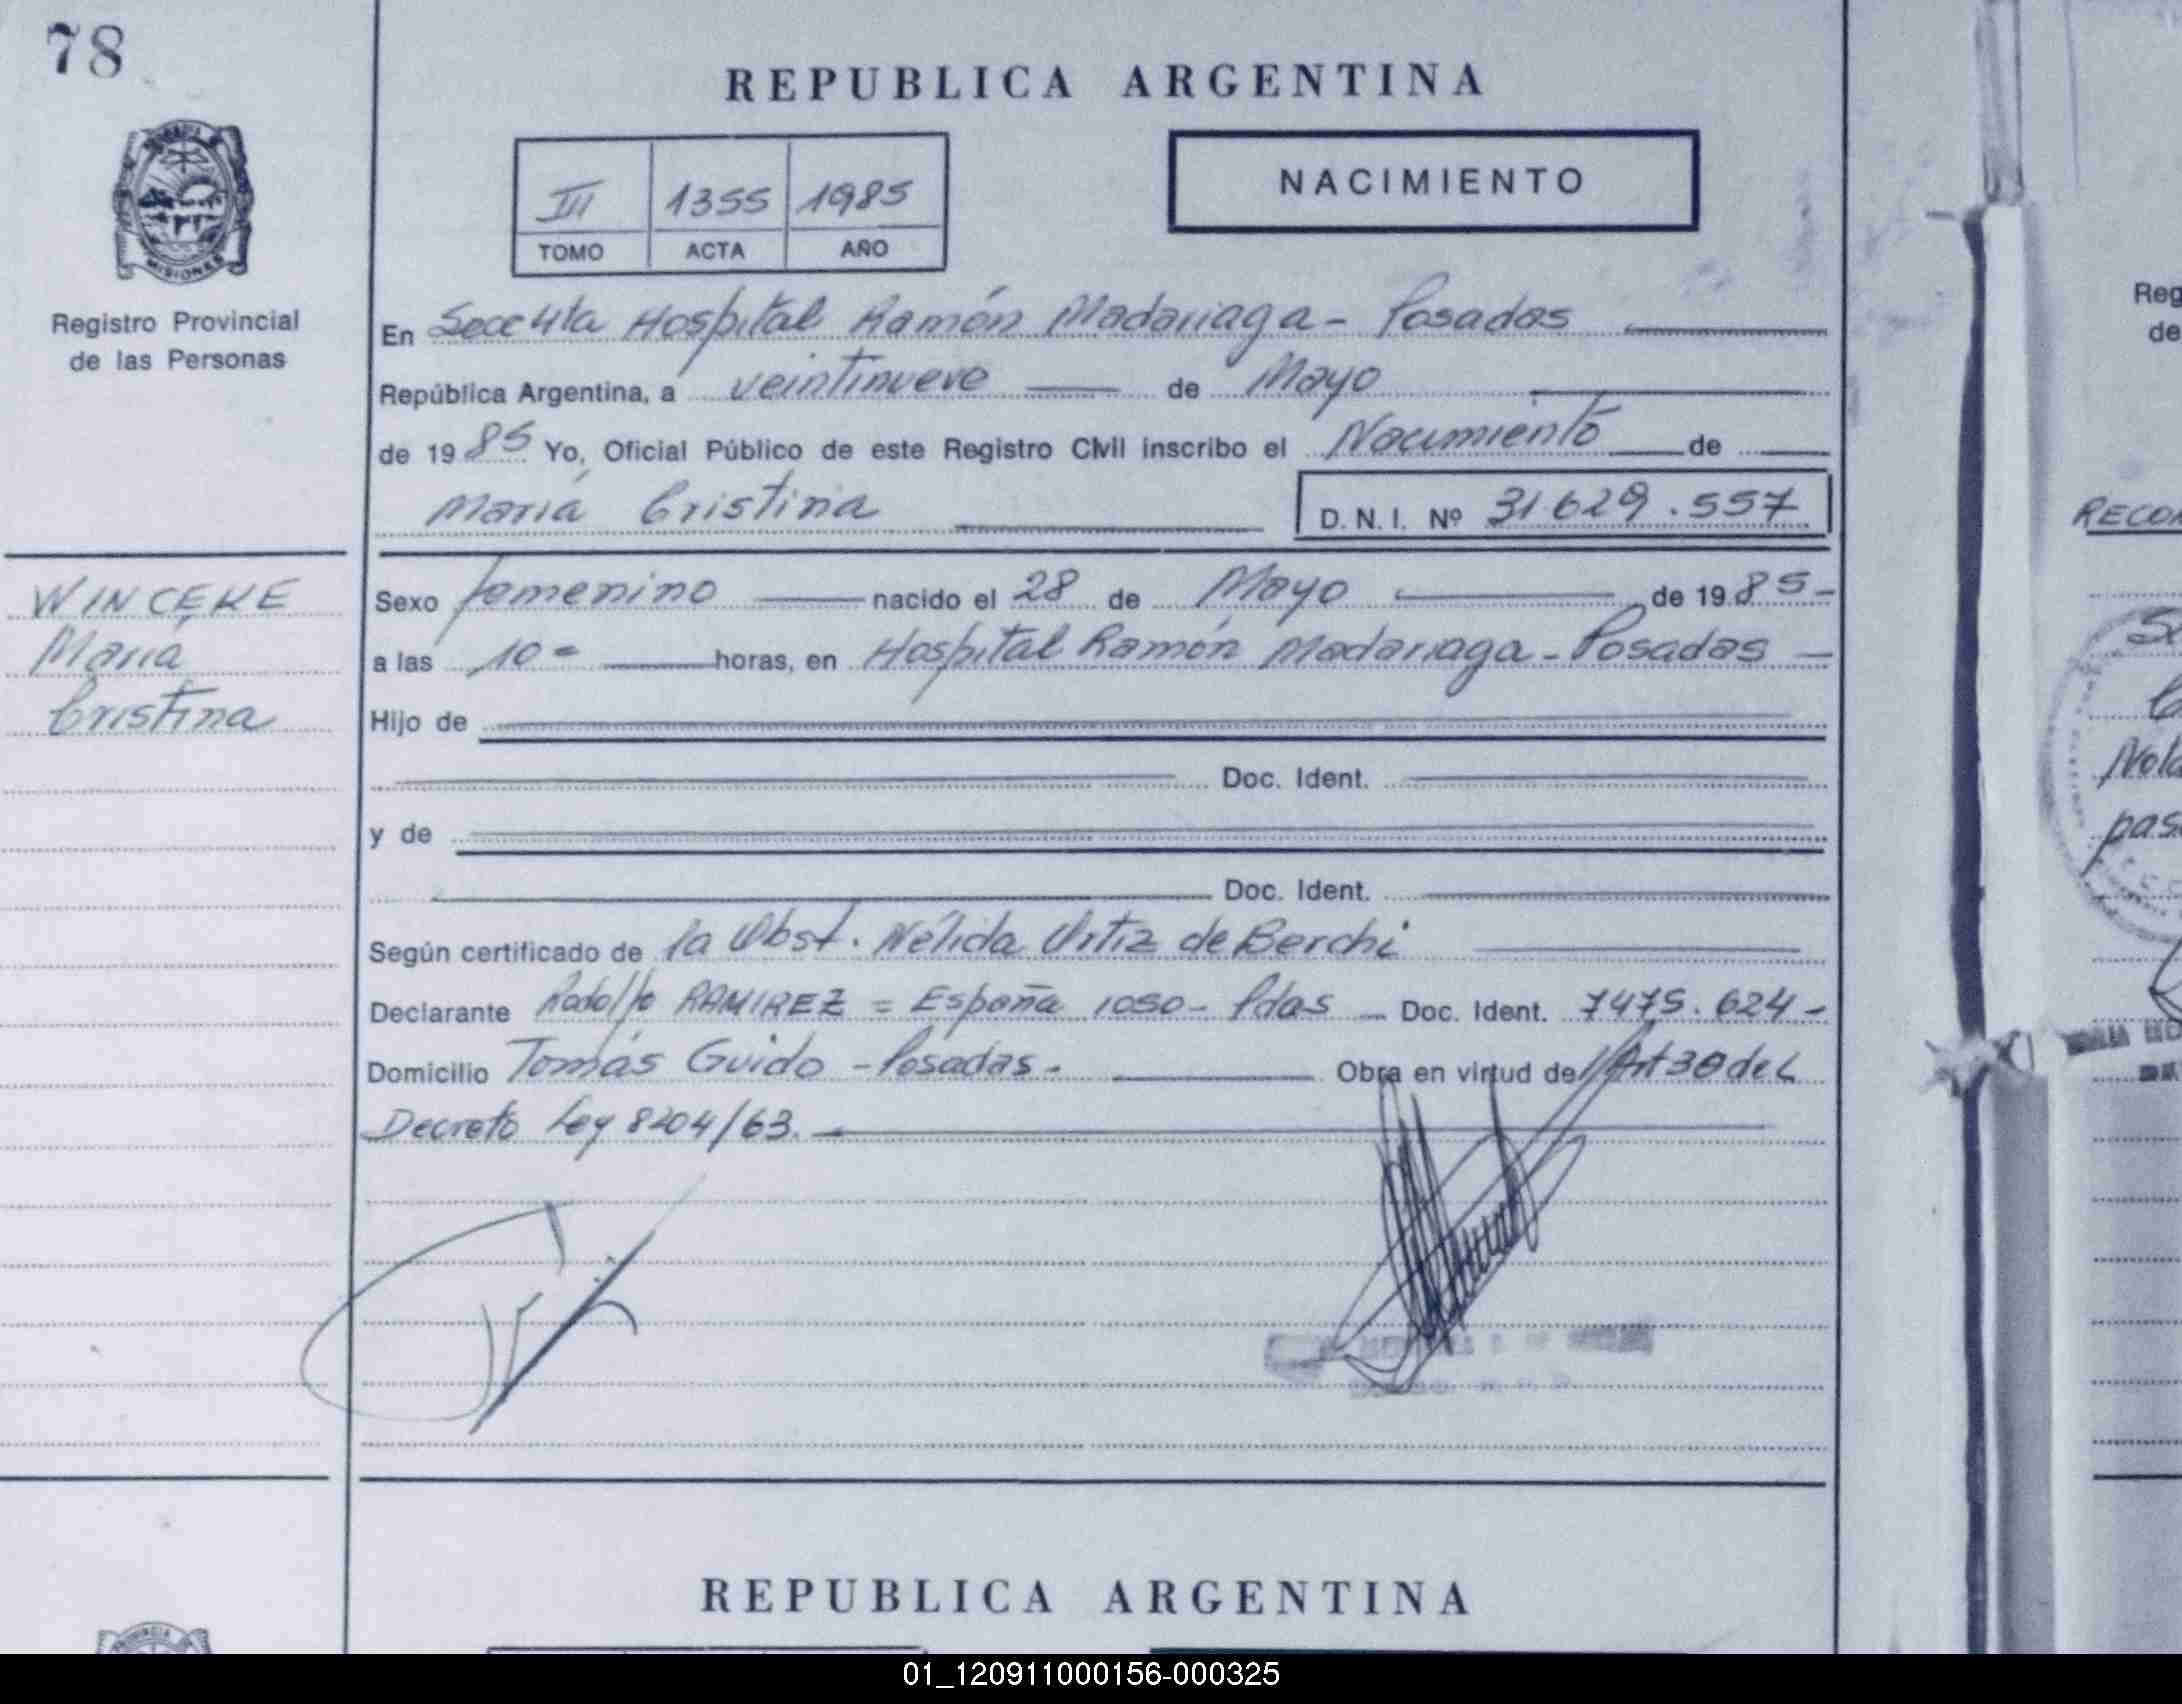 78
REPUBLICA ARGENTINA
NACIMIENTO
III 1355 1985
TOMO ACTA AÑO
MISIONES
Registro Provincial
de las Personas
En Secc 4ta Hospital Ramón Madariaga - Posadas
República Argentina, a veintinueve de Mayo
de 1985 Yo, Oficial Público de este Registro Civil inscribo el Nacimiento de
María Cristina D. N. I. Nº 31629.557
WINCEKE
María
Cristina
Sexo femenino nacido el 28 de Mayo de 1985-
a las 10= horas, en Hospital Ramón Madariaga - Posadas
Hijo de
Doc. Ident.
y de
Doc. Ident.
Según certificado de la Obst. Nélida Ortiz de Berchi
Declarante Rodolfo RAMIREZ = España 1050 - Pdas - Doc. Ident. 7475.624-
Domicilio Tomás Guido - Posadas - Obra en virtud del Art 30 del
Decreto Ley 8204/63.
REPUBLICA ARGENTINA
PROVINCIA DE
Reg
de
RECO
Nola
pas
01_120911000156-000325